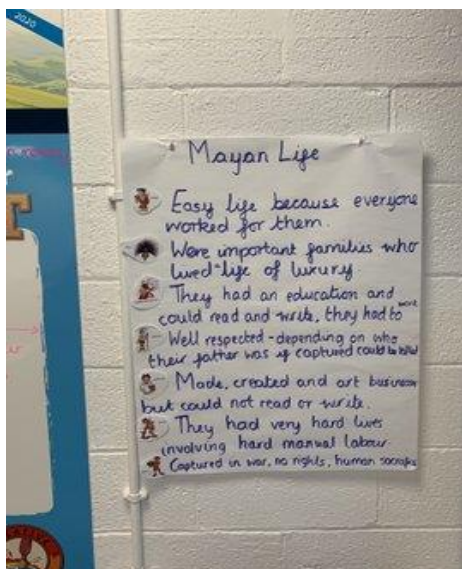 2020
Mayan Life
Easy life because everyone
worked for them.
Were important families who
lived-life of luxury
They had an education and
could read and write, they had to work
Well respected-depending on who
their father was if captured could be killed
Made, created and art business
but could not read or write.
They had very hard lives
involving hard manual labour.
Captured in war, no rights, human